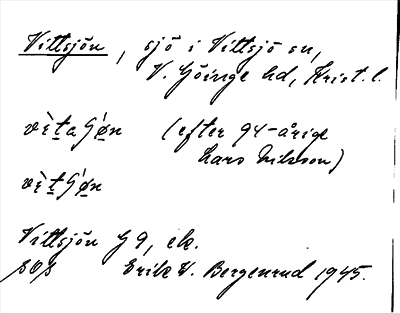 Vittsjön, sjö i Vittsjö sn,
V. Göinge hd, Krist. l.
(efter 94-årige
Lars Nilsson)
Vittsjön G 9, ek.
SOS Erik V. Bergenrud 1945.